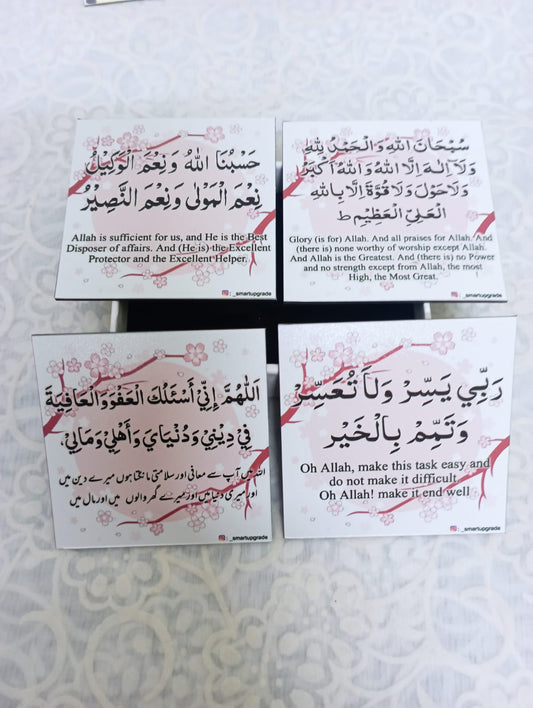 حَسْبُنَا اللهُ وَنِعْمَ الْوَكِيْلُ
نِعْمَ الْمَوْلٰى وَنِعْمَ النَّصِيْرُ
Allah is sufficient for us, and He is the Best
Disposer of affairs. And (He is) the Excellent
Protector and the Excellent Helper.
: _smartupgrade
سُبْحَانَ اللهِ وَالْحَمْدُ لِلّٰهِ
وَلَآ اِلٰهَ اِلَّا اللهُ وَاللهُ اَكْبَرُ
وَلَا حَوْلَ وَلَا قُوَّةَ اِلَّا بِاللهِ
الْعَلِيِّ الْعَظِيْمِ ط
Glory (is for) Allah. And all praises for Allah. And
(there) is none worthy of worship except Allah.
And Allah is the Greatest. And (there is) no Power
and no strength except from Allah, the most
High, the Most Great.
: _smartupgrade
اَللّٰهُمَّ إِنِّيْ أَسْئَلُكَ الْعَفْوَ وَالْعَافِيَةَ
فِيْ دِيْنِيْ وَدُنْيَايَ وَأَهْلِيْ وَمَالِيْ.
اللہ میں آپ سے معافی اور سلامتی مانگتا ہوں میرے دین میں
اور میری دنیا میں اور میرے گھر والوں میں اور مال میں
: _smartupgrade
رَبِّي يَسِّرْ وَلَا تُعَسِّرْ
وَتَمِّمْ بِالْخَيْر
Oh Allah, make this task easy and
do not make it difficult.
Oh Allah! make it end well
: _smartupgrade